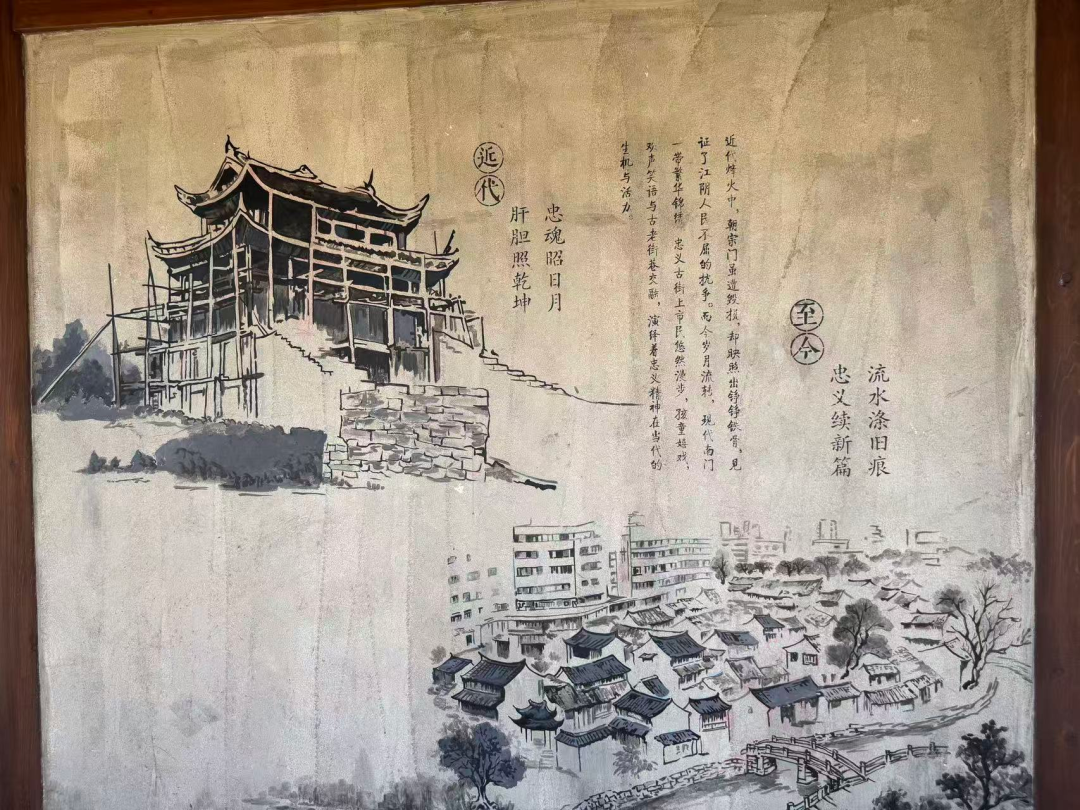 近代烽火中，朝宗门虽遭毁损，却映照出铮铮铁骨，见
证了江阴人民不屈的抗争。而今岁月流转，现代南门
一带繁华锦绣，忠义古街上市民悠然漫步，孩童嬉戏，
欢声笑语与古老街巷交融，演绎着忠义精神在当代的
生机与活力。
近代
忠魂昭日月
肝胆照乾坤
至今
流水涤旧痕
忠义续新篇